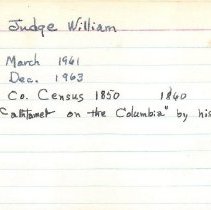 Judge William
March 1961
Dec. 1963
Co. Census 1850 1860
"Cathlamet on the Columbia" by his